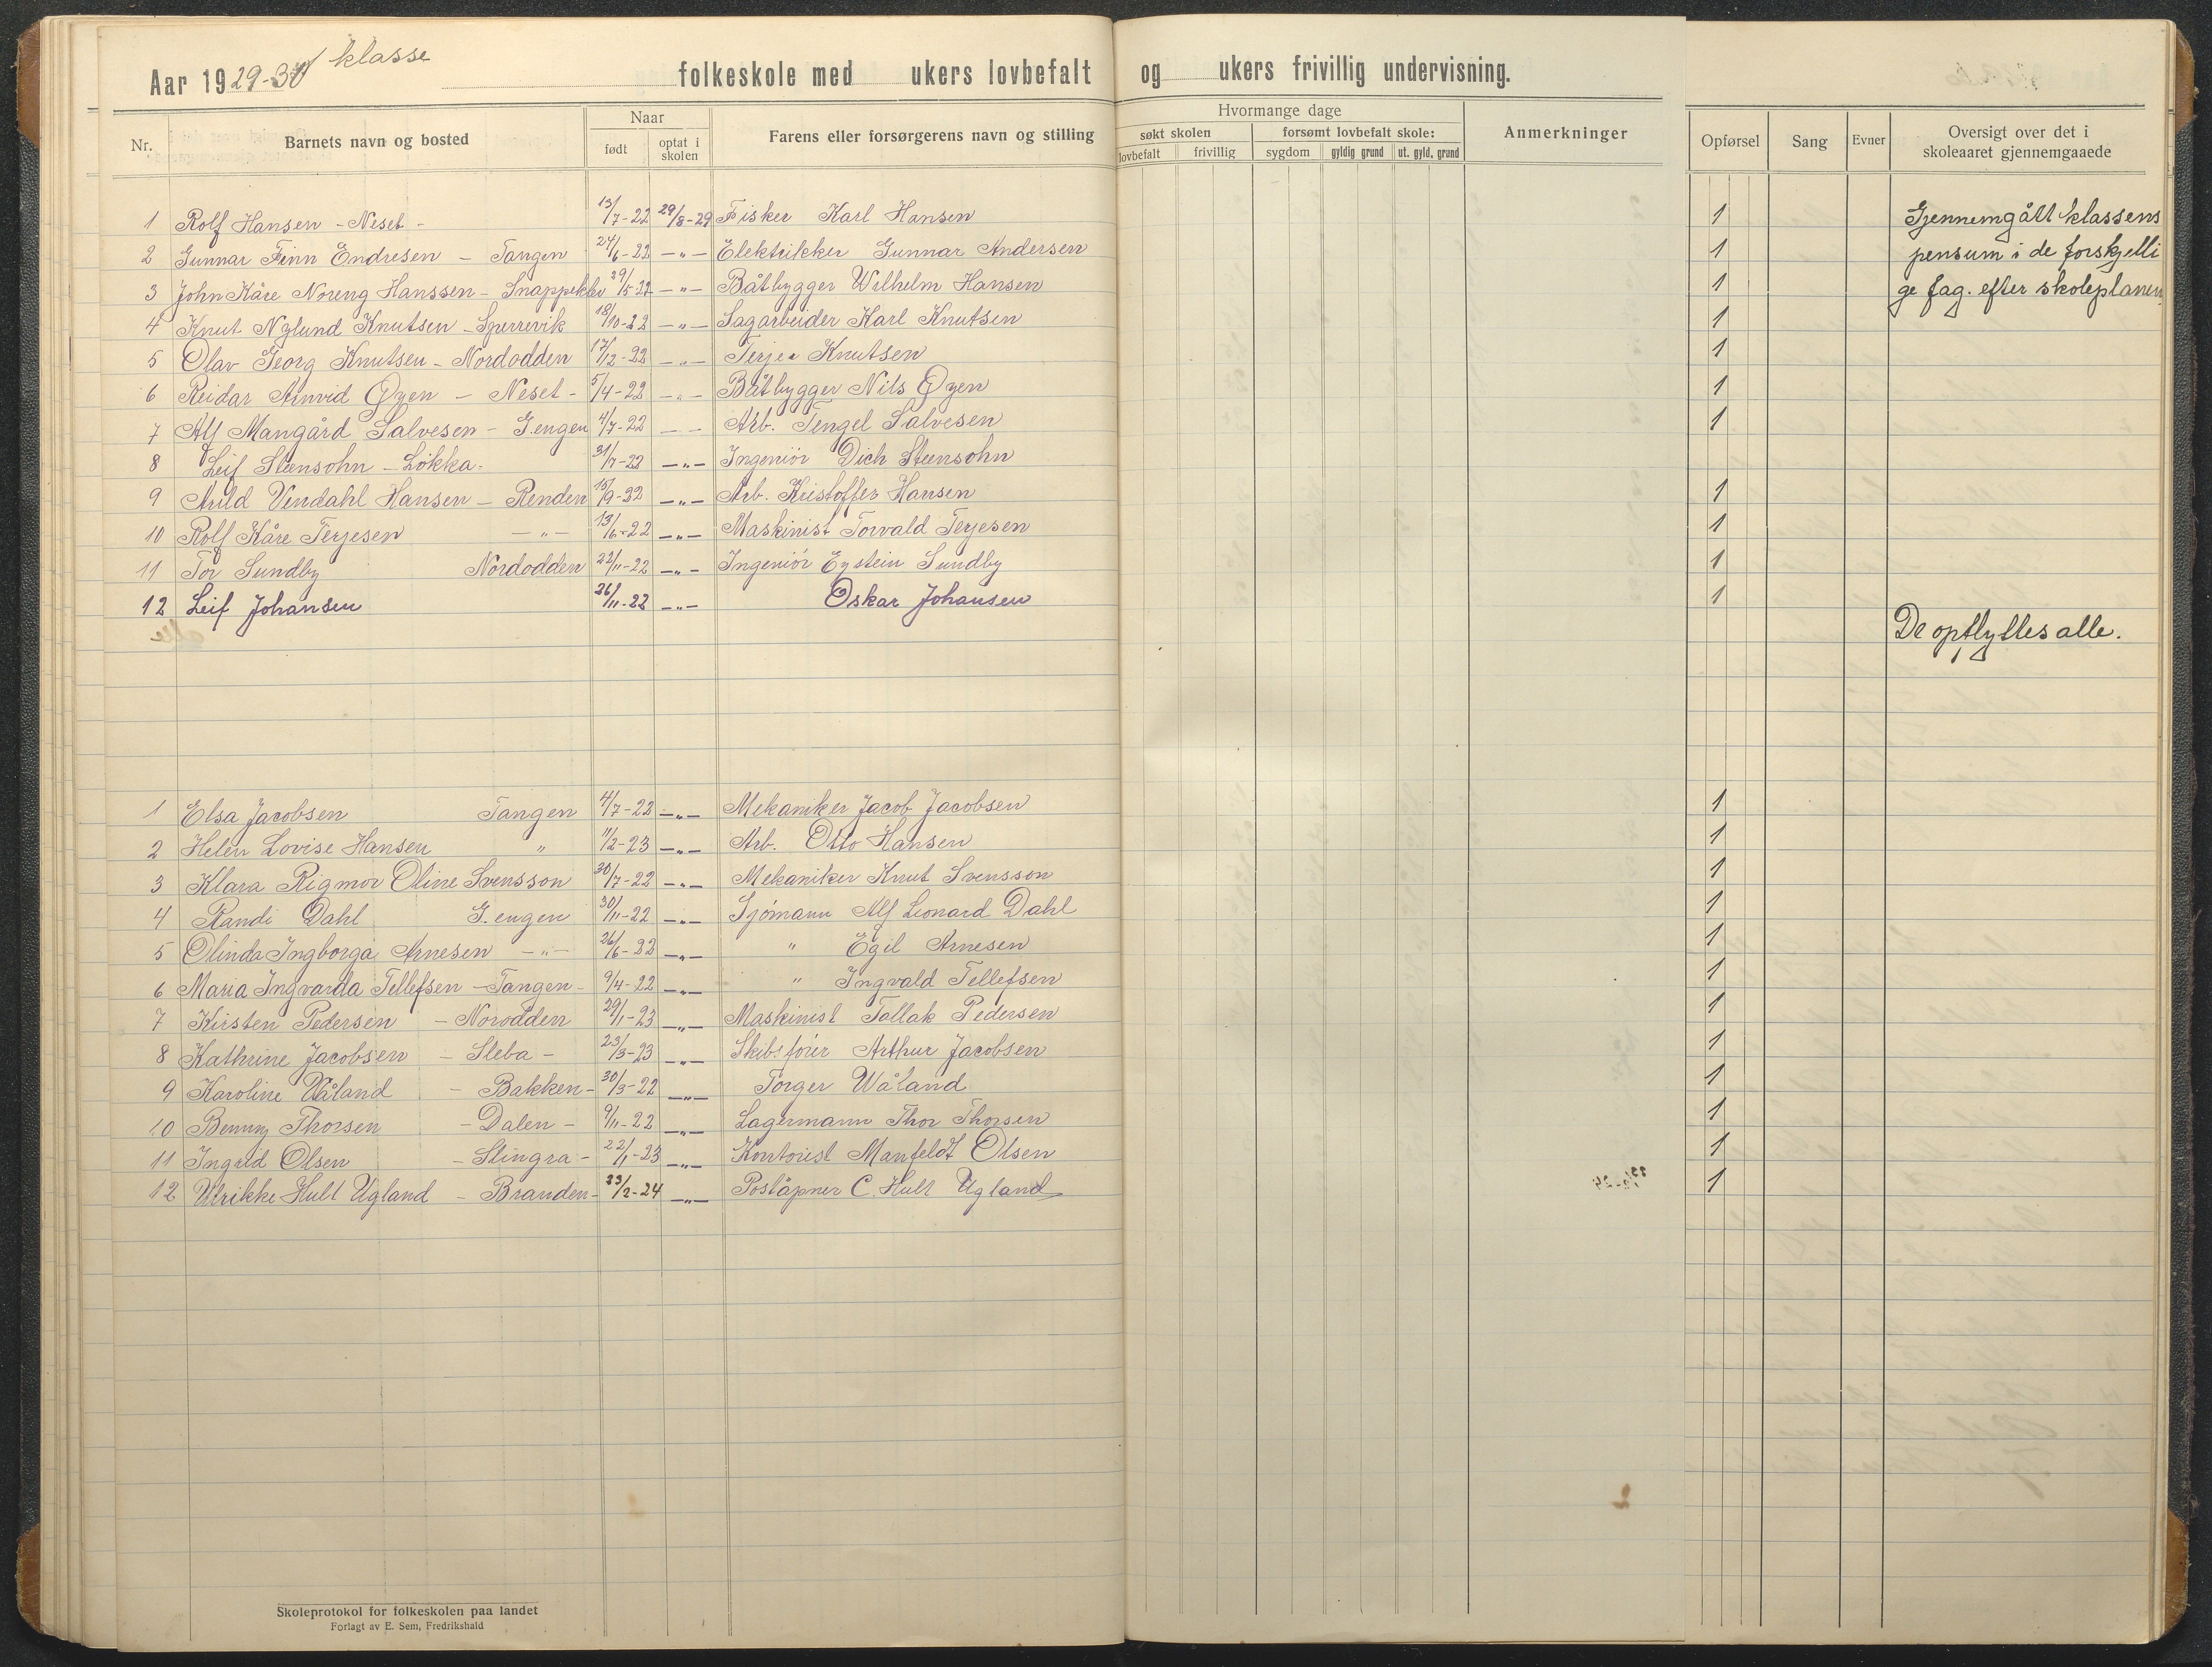 Aar 1929-30 klasse folkeskole med ukers lovbefalt og ukers frivillig undervisning.
Nr. Barnets navn og bosted Naar Farens eller forsørgerens navn og stilling Hvormange dage Anmerkninger Opførsel Sang Evner Oversigt over det i skoleaaret gjennemgaaede
født optat i skolen søkt skolen forsømt lovbefalt skole:
lovbefalt frivillig sygdom gyldig grund ut. gyld. grund
1 Rolf Hansen - Neset - 13/7-22 29/8-29 Fisker Karl Hansen 1 Gjennemgått klassens
2 Gunnar Finn Endresen - Tangen 24/6-22 -„- Elektrikker Gunnar Andersen 1 pensum i de forskjelli
3 John Kåre Noreng Hanssen - Snappekler 29/5-22 -„- Båtbygger Wilhelm Hansen 1 ge fag. efter skoleplanen
4 Knut Nylund Knutsen - Sperrevik 18/10-22 -„- Sagarbeider Karl Knutsen 1
5 Olav Georg Knutsen - Nordodden 17/12-22 -„- Terjer Knutsen 1
6 Reidar Arnvid Øyen - Neset - 5/4-22 -„- Båtbygger Nils Øyen 1
7 Alf Mangård Salvesen - G.engen 4/7-22 - - Arb. Tengel Salvesen 1
8 Leif Steensohn - Løkka - 31/7-22 -„- Ingeniör Dich Steensohn
9 Arild Vindahl Hansen - Renden 15/9-22 -„- Arb. Kristoffer Hansen 1
10 Rolf Kåre Terjesen -„- 13/6-22 -„- Maskinist Torvald Terjesen 1
11 Tor Sundby Nordodden 22/11-22 -„- Ingeniör Eystein Sundby 1
12 Leif Johansen 26/11-22 -„- Oskar Johansen 1
De opflyttes alle.
1 Elsa Jacobsen Tangen 4/7-22 -„- Mekaniker Jacob Jacobsen 1
2 Helen Lovise Hansen „ 11/2-23 -„- Arb. Otto Hansen 1
3 Klara Rigmor Oline Svensson 30/7-22 -„- Mekaniker Knut Svensson 1
4 Randi Dahl G.engen 30/11-22 -„- Sjömann Alf Leonard Dahl 1
5 Olinda Ingborga Arnesen -„- 26/6-22 -„- „ Egil Arnesen 1
6 Maria Ingvarda Tellefsen - Tangen - 9/4-22 -„- „ Ingvald Tellefsen 1
7 Kirsten Pedersen - Norodden 29/1-23 -„- Maskinist Tallak Pedersen 1
8 Kathrine Jacobsen - Sleba - 23/3-23 -„- Skibsförer Arthur Jacobsen 1
9 Karoline Våland - Bakken - 30/3-22 -„- Torger Wåland 1
10 Benny Thorsen - Dalen - 9/11-22 -„- Lagermann Thor Thorsen 1
11 Ingrid Olsen - Slingra - 22/1-23 -„- Kontorist Manfeldt Olsen 1
12 Ulrikke Hult Ugland - Branden - 23/2-24 -„- Poståpner C. Hult Ugland 1
Skoleprotokol for folkeskolen paa landet
Forlagt av E. Sem, Fredrikshald